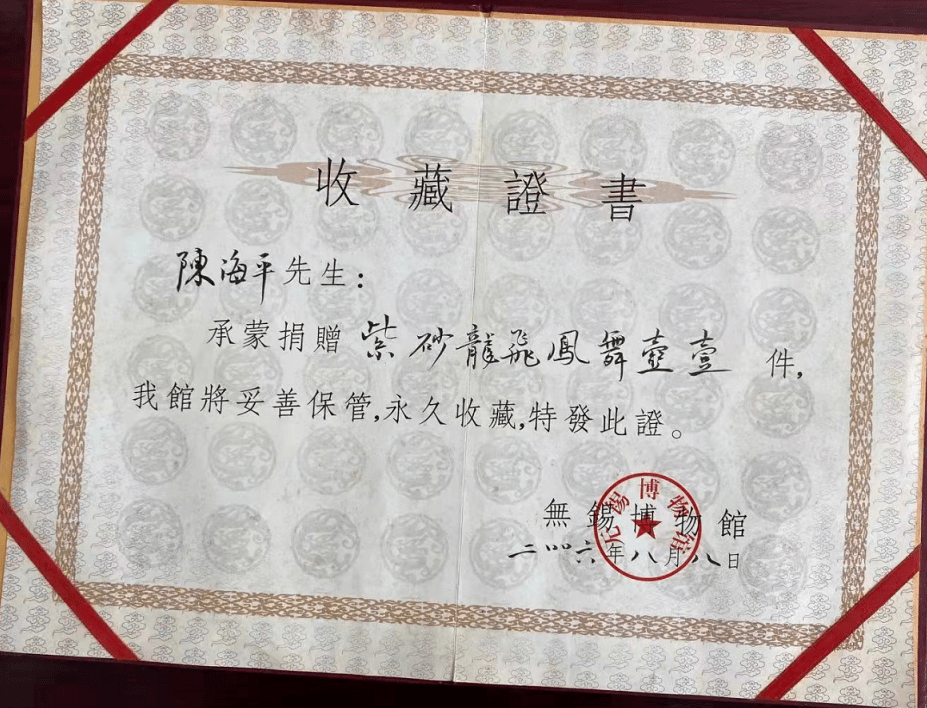 收藏證書
陳海平先生：
承蒙捐贈紫砂龍飛鳳舞壺壹件，
我館將妥善保管，永久收藏，特發此證。
無錫博物館
二〇〇六年八月八日
无锡博物馆